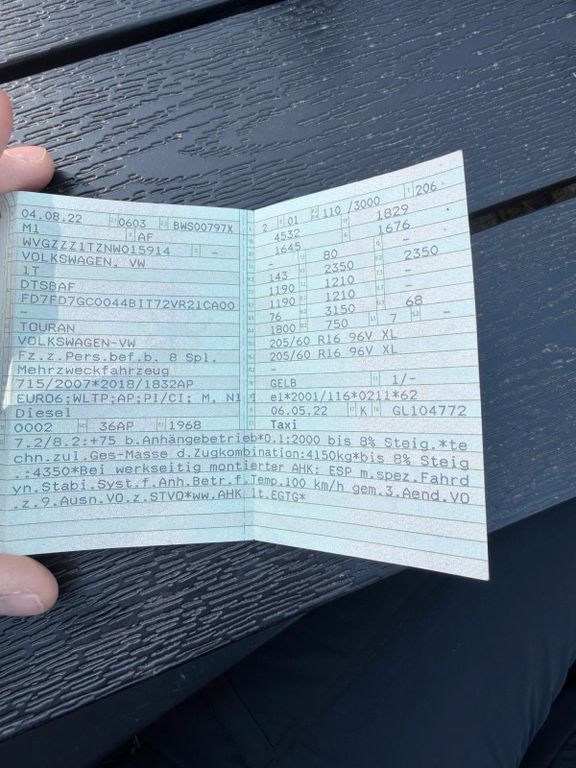 04.08.22 0603 BWS00797X
M1 AF
WVGZZZ1TZNW015914 -
VOLKSWAGEN, VW
1T
DTSBAF
FD7FD7GC0044BIT72VR21CA00
-
TOURAN
VOLKSWAGEN-VW
Fz.z.Pers.bef.b. 8 Spl.
Mehrzweckfahrzeug
715/2007*2018/1832AP
EURO6;WLTP;AP;PI/CI; M, N1
Diesel
0002 36AP 1968
2 01 110 /3000 206
4532 1829
1645 1676
- 80 -
143 2350 2350
1190 1210 -
1190 1210 -
76 3150 68
1800 750 7 -
205/60 R16 96V XL
205/60 R16 96V XL
-
GELB 1/-
e1*2001/116*0211*62
06.05.22 K GL104772
Taxi
7.2/8.2:+75 b.Anhängebetrieb*O.1:2000 bis 8% Steig.*te
chn.zul.Ges-Masse d.Zugkombination:4150kg*bis 8% Steig
.:4350*Bei werkseitig montierter AHK: ESP m.spez.Fahrd
yn.Stabi.Syst.f.Anh.Betr.f.Temp.100 km/h gem.3.Aend.VO
.z.9.Ausn.VO.z.STVO*ww.AHK lt.EGTG*